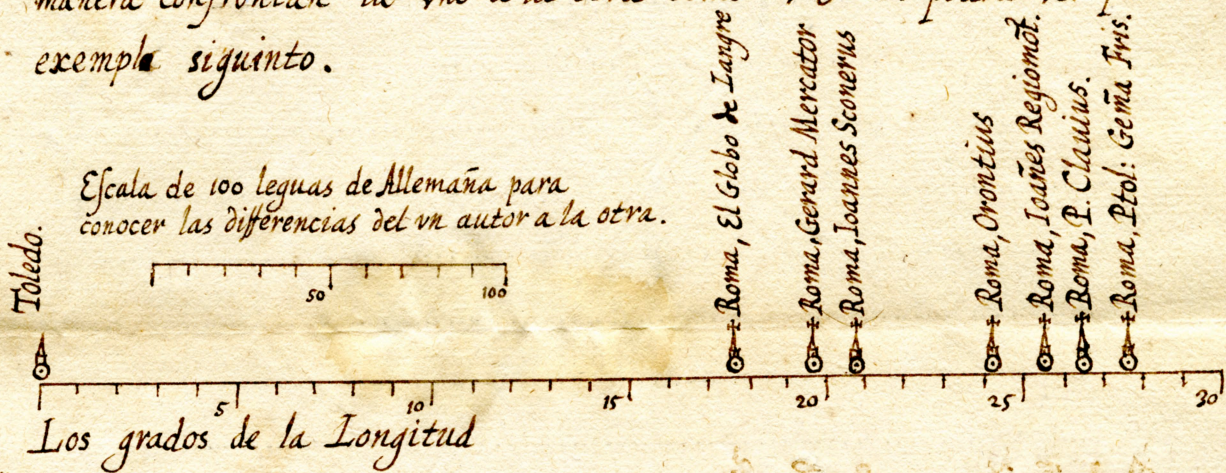 manera confrontan
exemplo siguinto.
Escala de 100 leguas de Allemaña para
conocer las differencias del vn autor a la otra.
50 100
Toledo.
Roma, El Globo de Langre
Roma, Gerard Mercator
Roma, Ioannes Sconerus
Roma, Orontius
Roma, Ioañes Regiomõt.
Roma, P. Clauius.
Roma, Ptol: Gem̃a Fris.
5 10 15 20 25 30
Los grados de la Longitud